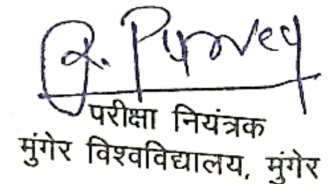 परीक्षा नियंत्रक
मुंगेर विश्वविद्यालय, मुंगेर